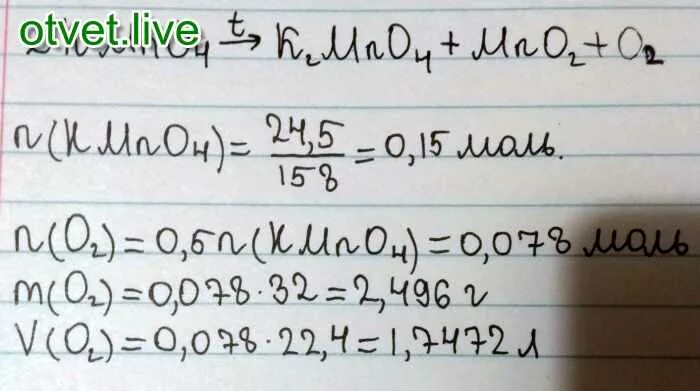 otvet.live
MnO₄ —t→ K₂MnO₄ + MnO₂ + O₂
n(KMnO₄) = 24,5/158 = 0,15 моль.
n(O₂) = 0,5n(KMnO₄) = 0,078 моль
m(O₂) = 0,078·32 = 2,496 г
V(O₂) = 0,078·22,4 = 1,7472 л